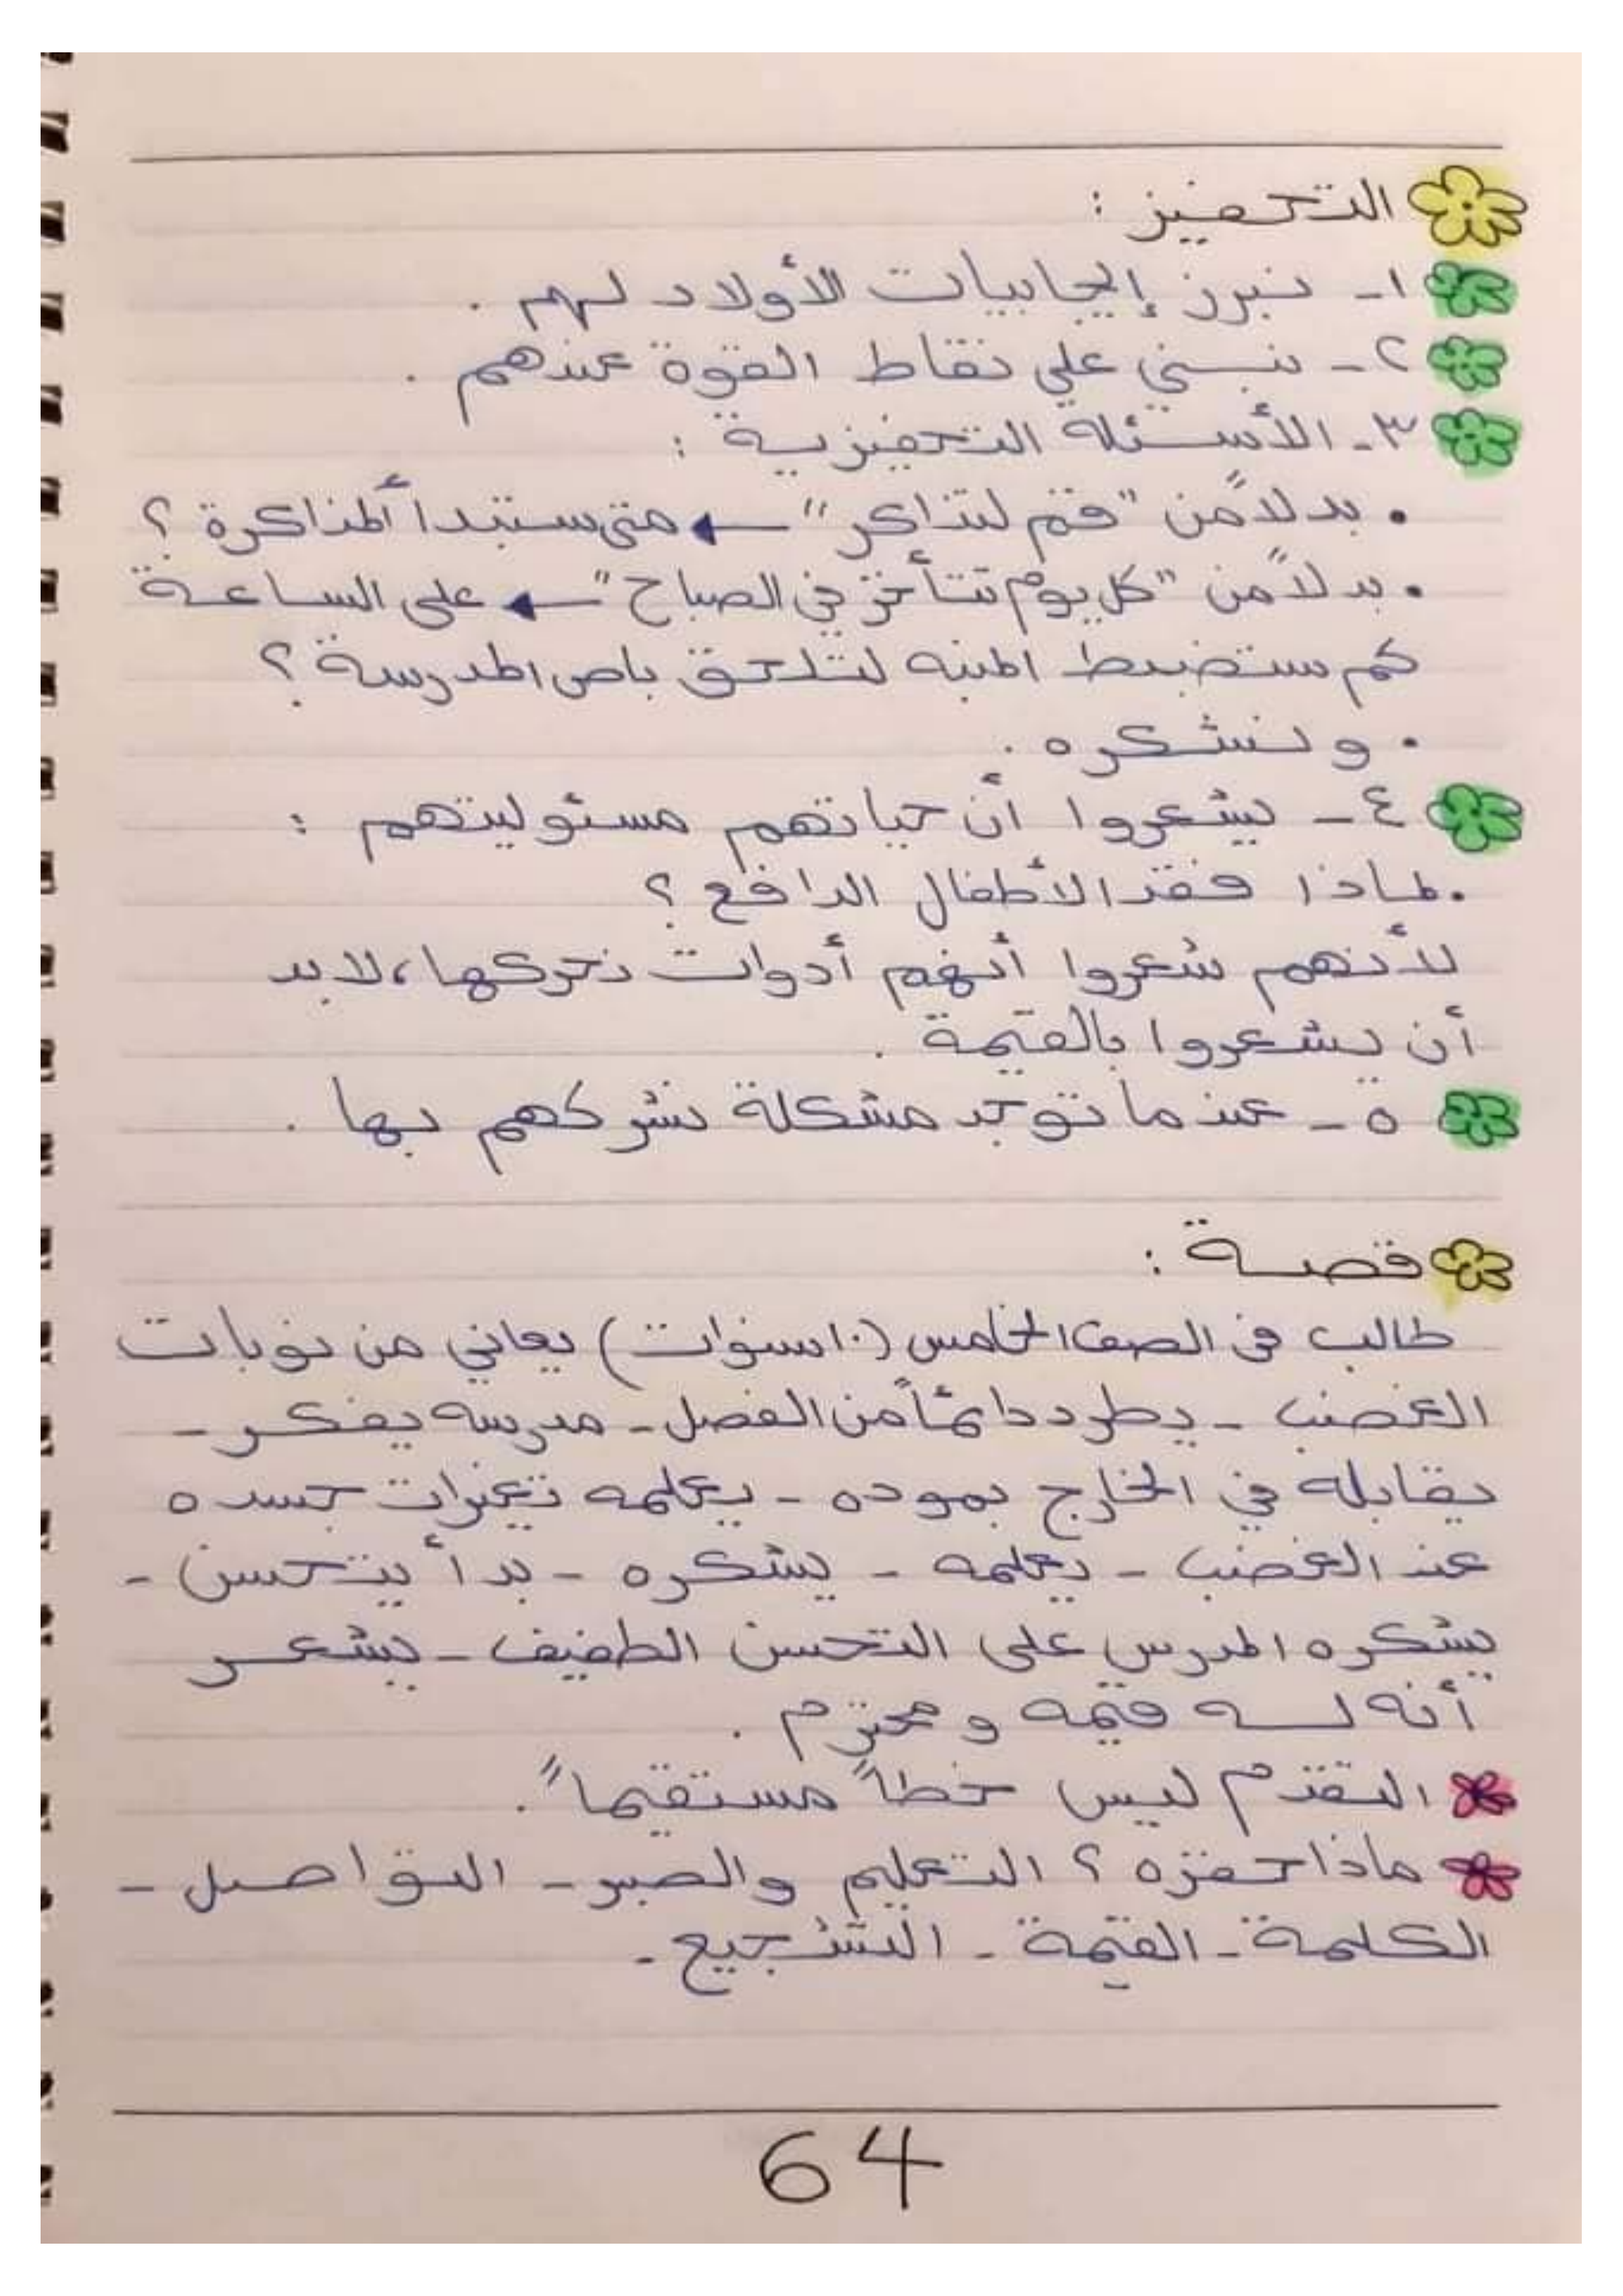 التحفيز :
١- نبرز إيجابيات الأولاد لهم .
٢- نبني على نقاط القوة عندهم .
٣- الأسئلة التحفيزية :
• بدلاً من "قم لتذاكر" ← متى ستبدأ المذاكرة ؟
• بدلاً من "كل يوم تتأخر في الصباح" ← على الساعة
كم ستضبط المنبه لتلحق باص المدرسة ؟
• ونشكره .
٤- يشعروا أن حياتهم مسئوليتهم :
• لماذا فقد الأطفال الدافع ؟
لأنهم شعروا أنهم أدوات نحركها، لابد
أن يشعروا بالقيمة .
٥- عندما توجد مشكلة نشركهم بها .
قصة :
طالب في الصف الخامس (١٠ سنوات) يعاني من نوبات
الغضب - يطرد دائماً من الفصل - مدرسه يفكر -
يقابله في الخارج بموده - يعلمه تغيرات جسده
عند الغضب - يعلمه - يشكره - بدأ يتحسن -
يشكره المدرس على التحسن الطفيف - يشعر
أنه له قيمه و محترم .
التقدم ليس خطاً مستقيماً .
ماذا حفزه ؟ التعليم والصبر - التواصل -
الكلمة - القيمة - التشجيع -
64